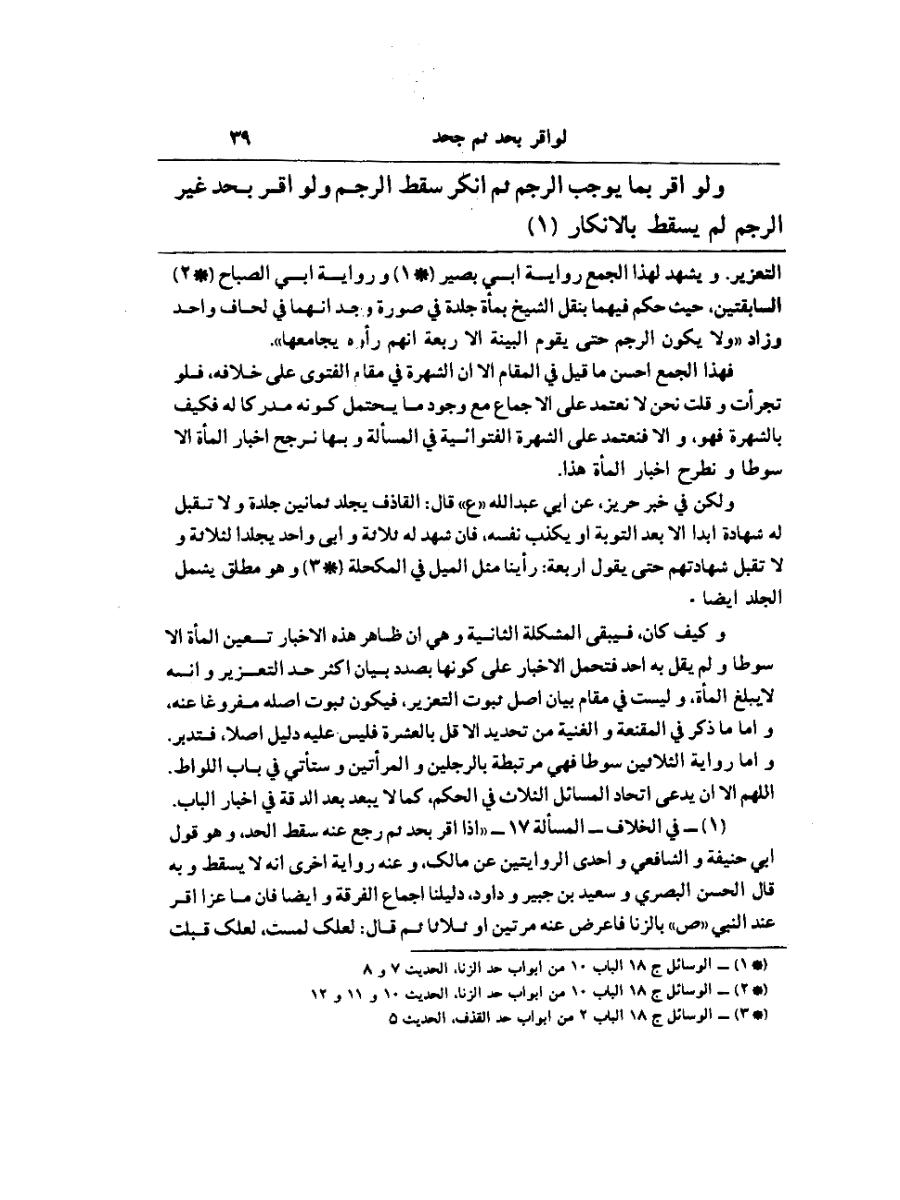 لو اقر بحد ثم جحد ٣٩
ولو اقر بما يوجب الرجم ثم انكر سقط الرجم ولو اقر بحد غير
الرجم لم يسقط بالانكار (١)
التعزير. و يشهد لهذا الجمع رواية ابي بصير (*١) و رواية ابي الصباح (*٢)
السابقتين، حيث حكم فيهما بنقل الشيخ بمأة جلدة في صورة وجد انهما في لحاف واحد
وزاد «ولا يكون الرجم حتى يقوم البينة الا ربعة انهم رأوه يجامعها».
فهذا الجمع احسن ما قيل في المقام الا ان الشهرة في مقام الفتوى على خلافه، فلو
تجرأت و قلت نحن لا نعتمد على الاجماع مع وجود ما يحتمل كونه مدركا له فكيف
بالشهرة فهو، و الا فنعتمد على الشهرة الفتوائية في المسألة و بها نرجح اخبار المأة الا
سوطا و نطرح اخبار المأة هذا.
ولكن في خبر حريز، عن ابي عبدالله «ع» قال: القاذف يجلد ثمانين جلدة و لا تقبل
له شهادة ابدا الا بعد التوبة او يكذب نفسه، فان شهد له ثلاثة و ابى واحد يجلد الثلاثة و
لا تقبل شهادتهم حتى يقول اربعة: رأينا مثل الميل في المكحلة (*٣) و هو مطلق يشمل
الجلد ايضا .
و كيف كان، فيبقى المشكلة الثانية و هي ان ظاهر هذه الاخبار تعين المأة الا
سوطا و لم يقل به احد فتحمل الاخبار على كونها بصدد بيان اكثر حد التعزير و انه
لايبلغ المأة، و ليست في مقام بيان اصل ثبوت التعزير، فيكون ثبوت اصله مفروغا عنه،
و اما ما ذكر في المقنعة و الغنية من تحديد الاقل بالعشرة فليس عليه دليل اصلا، فتدبر.
و اما رواية الثلاثين سوطا فهي مرتبطة بالرجلين و المرأتين و ستأتي في باب اللواط.
اللهم الا ان يدعى اتحاد المسائل الثلاث في الحكم، كما لا يبعد بعد الدقة في اخبار الباب.
(١) ــ في الخلاف ــ المسألة ١٧ ــ «اذا اقر بحد ثم رجع عنه سقط الحد، و هو قول
ابي حنيفة و الشافعي و احدى الروايتين عن مالك، و عنه رواية اخرى انه لا يسقط و به
قال الحسن البصري و سعيد بن جبير و داود، دليلنا اجماع الفرقة و ايضا فان ماعزا اقر
عند النبي «ص» بالزنا فاعرض عنه مرتين او ثلاثا ثم قال: لعلك لمست، لعلك قبلت
(*١) ــ الوسائل ج ١٨ الباب ١٠ من ابواب حد الزنا، الحديث ٧ و ٨
(*٢) ــ الوسائل ج ١٨ الباب ١٠ من ابواب حد الزنا، الحديث ١٠ و ١١ و ١٢
(*٣) ــ الوسائل ج ١٨ الباب ٢ من ابواب حد القذف، الحديث ٥